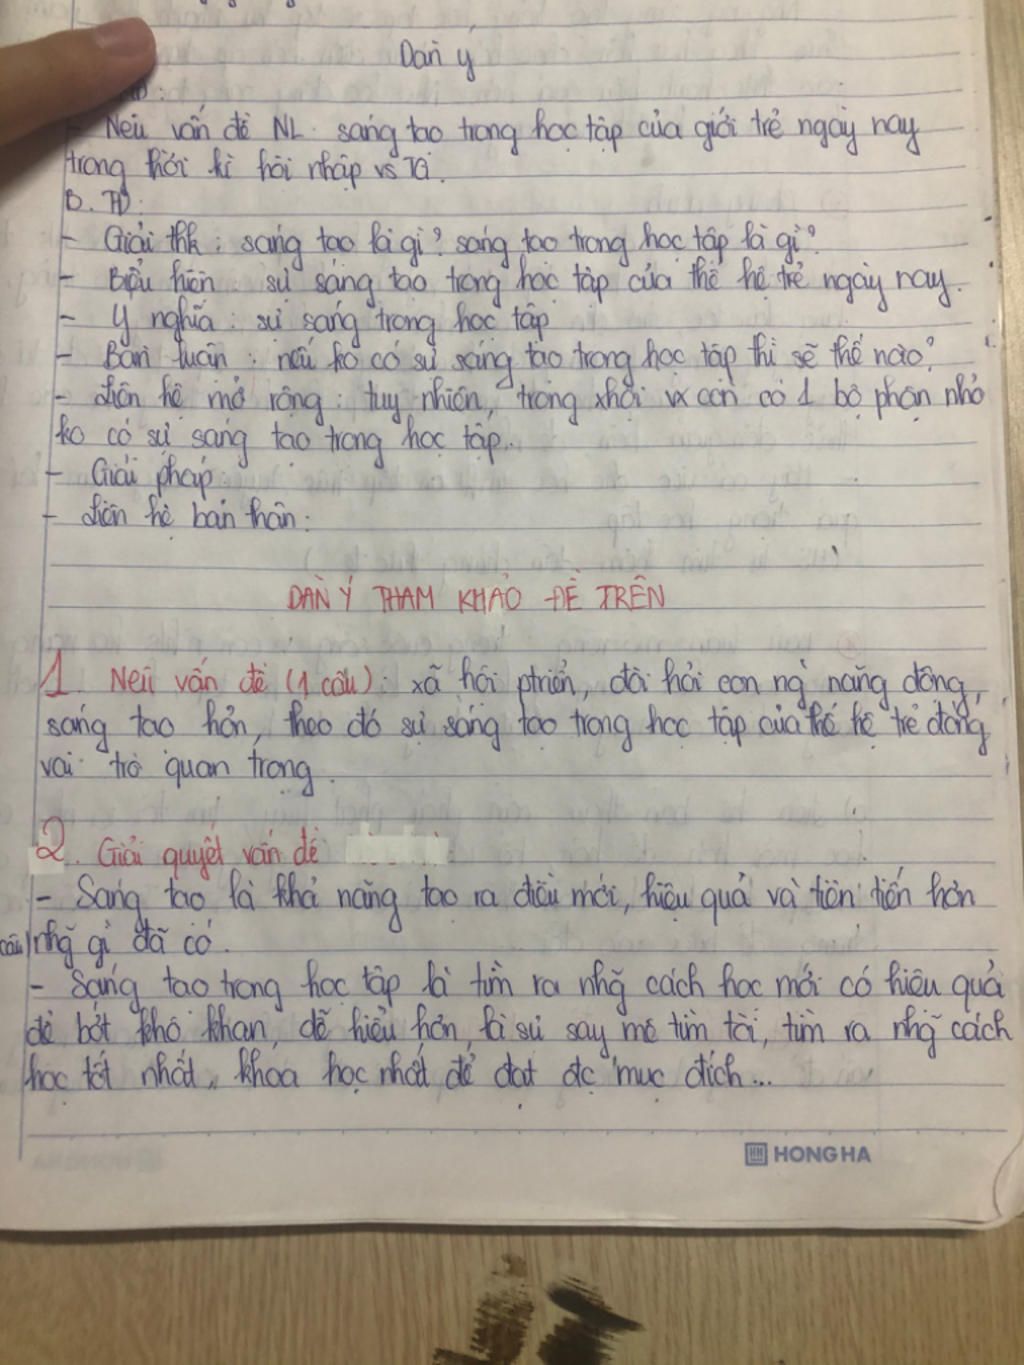 Dàn ý
- Nêu vấn đề NL: sáng tạo trong học tập của giới trẻ ngày nay
trong thời kì hội nhập vs TG.
B. TĐ:
- Giải thk: sáng tạo là gì? sáng tạo trong học tập là gì?
- Biểu hiện: sự sáng tạo trong học tập của thế hệ trẻ ngày nay.
- Ý nghĩa: sự sáng trong học tập
- Bàn luận: nếu ko có sự sáng tạo trong học tập thì sẽ thế nào?
- Liên hệ mở rộng: tuy nhiên, trong xhội vx còn có 1 bộ phận nhỏ
ko có sự sáng tạo trong học tập..
- Giải pháp:
- Liên hệ bản thân:
DÀN Ý THAM KHẢO ĐỀ TRÊN
1. Nêu vấn đề (1 câu): xã hội ptriển, đòi hỏi con ng năng động,
sáng tạo hơn, theo đó sự sáng tạo trong học tập của thế hệ trẻ đóng
vai trò quan trọng.
2. Giải quyết vấn đề
- Sáng tạo là khả năng tạo ra điều mới, hiệu quả và tiên tiến hơn
câu) nhg̃ gì đã có.
- Sáng tạo trong học tập là tìm ra nhg̃ cách học mới có hiệu quả
để bớt khô khan, dễ hiểu hơn, là sự say mê tìm tòi, tìm ra nhg̃ cách
học tốt nhất, khoa học nhất để đạt đc mục đích...
HONG HA